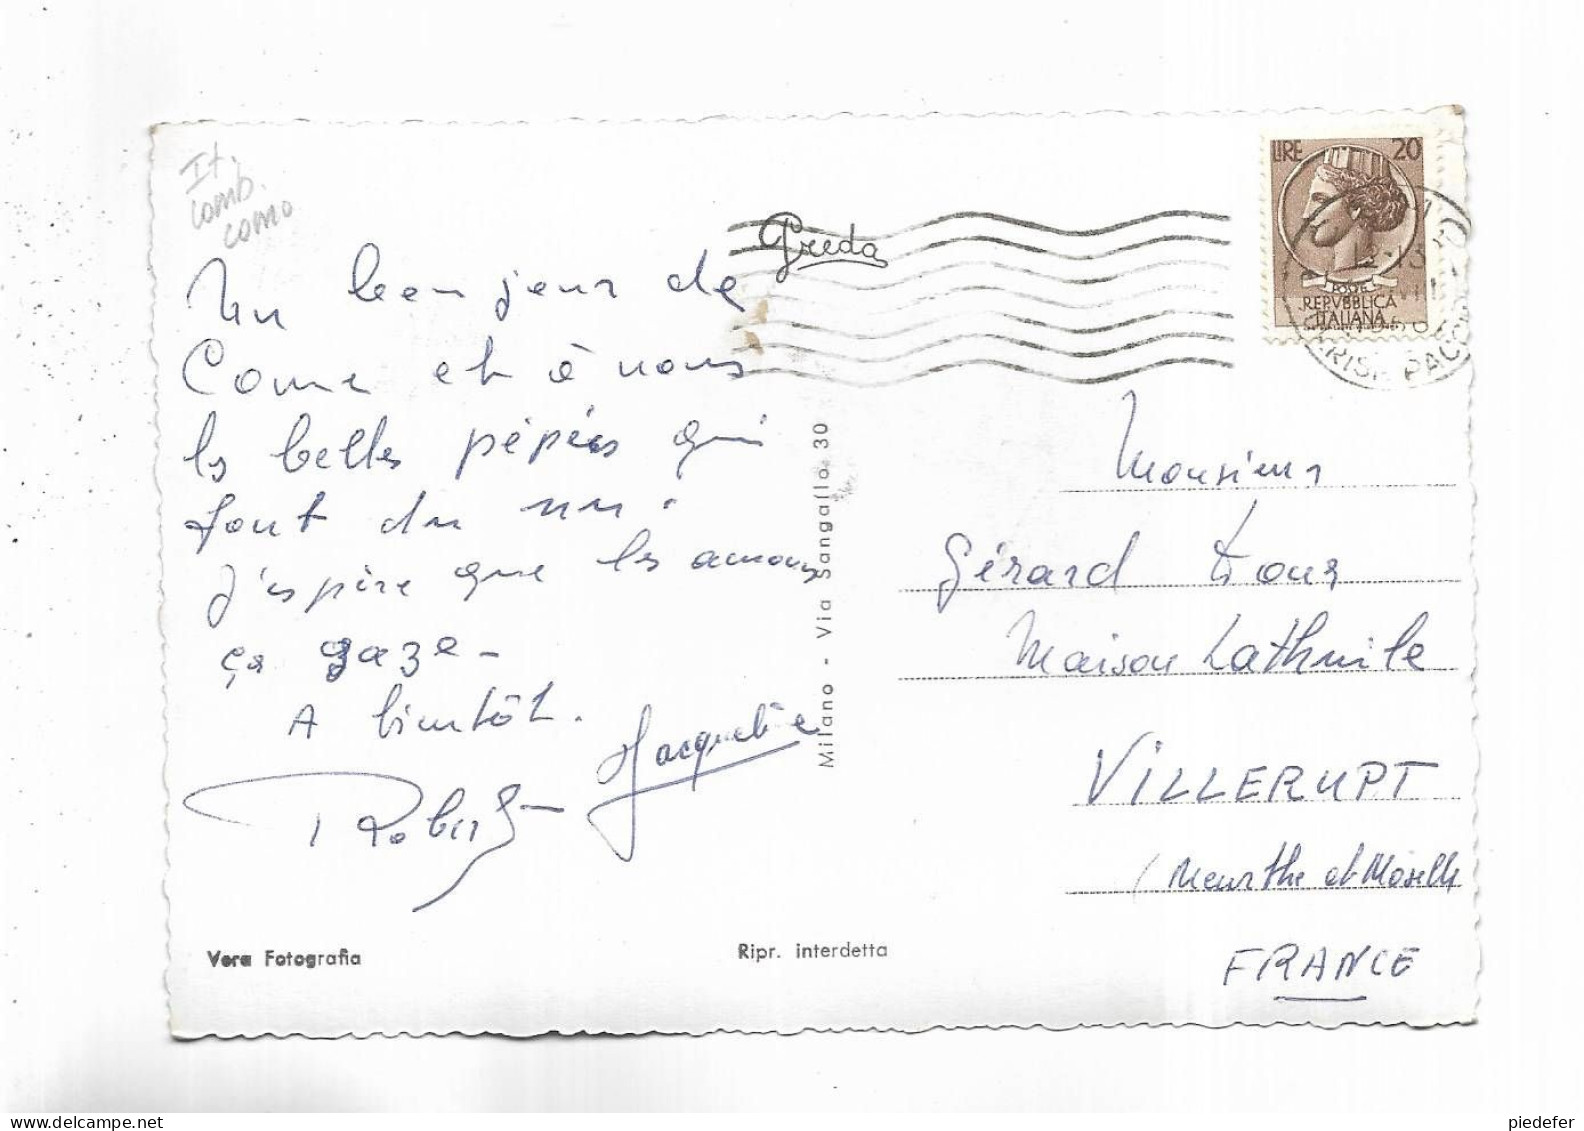 It.
comb.
como
Un bon jour de
Come et à nous
les belles pépées qui
font du nu.
J'espère que les amours
ça gaze -
A bientôt.
Jacqueline
Robert
Vera Fotografia
Ripr. interdetta
Greda
Milano - Via Sangallo 30
LIRE 20
POSTE
REPVBBLICA
ITALIANA
Monsieur
Gérard Tour
Maison Lathuile
VILLERUPT
(Meurthe et Moselle
FRANCE
piedefer